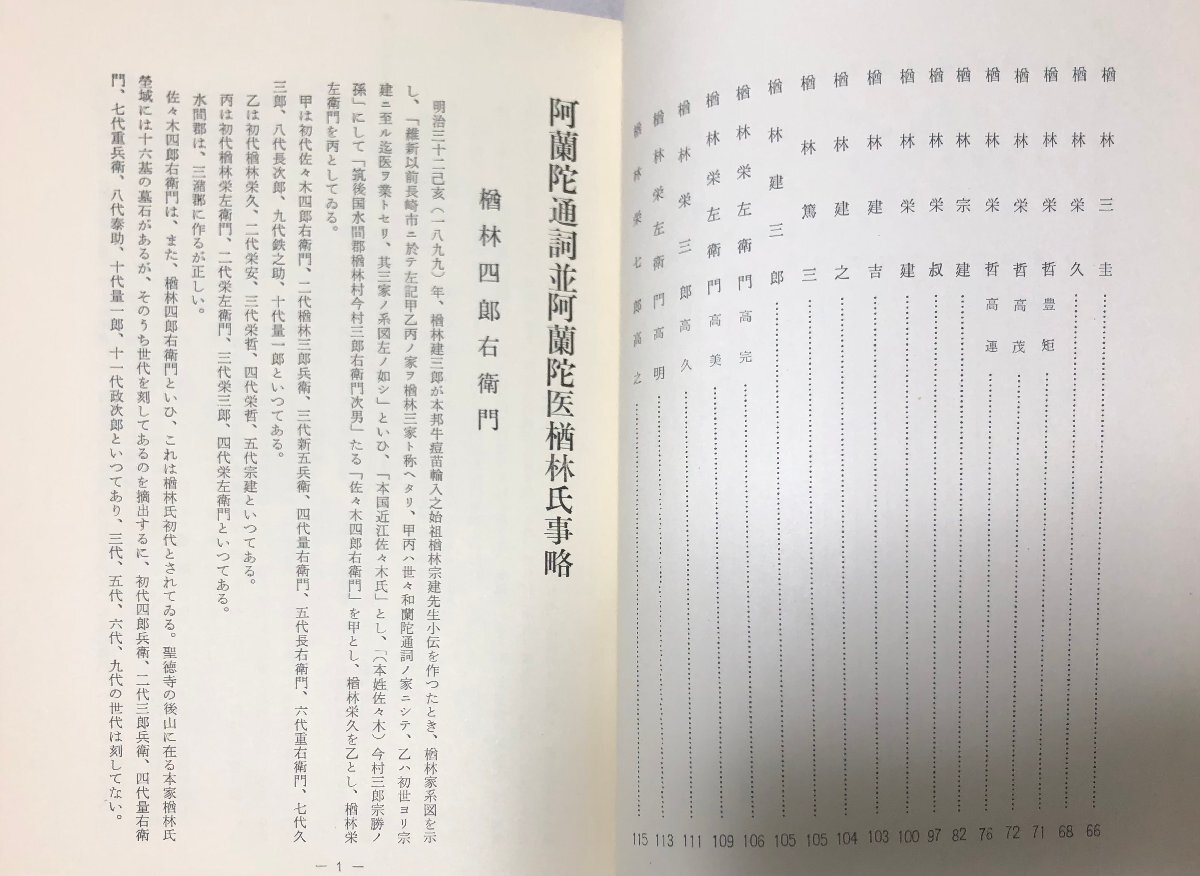 楢林三圭 66
楢林栄久 68
楢林栄哲豊矩 71
楢林栄哲高茂 72
楢林栄哲高連 76
楢林宗建 82
楢林栄叔 97
楢林栄建 100
楢林建吉 103
楢林建之 104
楢林篤三 105
楢林建三郎 105
楢林栄左衛門高完 106
楢林栄左衛門高美 109
楢林栄三郎高久 111
楢林栄左衛門高明 113
楢林栄七郎高之 115
阿蘭陀通詞並阿蘭陀医楢林氏事略
楢林四郎右衛門
明治三十二己亥(一八九九)年、楢林建三郎が本邦牛痘苗輸入之始祖楢林宗建先生小伝を作つたとき、楢林家系図を示
し、「維新以前長崎市ニ於テ左記甲乙丙ノ家ヲ楢林三家ト称ヘタリ、甲丙ハ世々和蘭陀通詞ノ家ニシテ、乙ハ初世ヨリ宗
建ニ至ル迄医ヲ業トセリ、其三家ノ系図左ノ如シ」といひ、「本国近江佐々木氏」とし、「(本姓佐々木)今村三郎宗勝ノ
孫」にして「筑後国水間郡楢林村今村三郎右衛門次男」たる「佐々木四郎右衛門」を甲とし、楢林栄久を乙とし、楢林栄
左衛門を丙としてゐる。
甲は初代佐々木四郎右衛門、二代楢林三郎兵衛、三代新五兵衛、四代量右衛門、五代長右衛門、六代重右衛門、七代久
三郎、八代長次郎、九代鉄之助、十代量一郎といつてある。
乙は初代楢林栄久、二代栄安、三代栄哲、四代栄哲、五代宗建といつてある。
丙は初代楢林栄左衛門、二代栄左衛門、三代栄三郎、四代栄左衛門といつてある。
水間郡は、三潴郡に作るが正しい。
佐々木四郎右衛門は、また、楢林四郎右衛門といひ、これは楢林氏初代とされてゐる。聖徳寺の後山に在る本家楢林氏
塋域には十六基の墓石があるが、そのうち世代を刻してあるのを摘出するに、初代四郎兵衛、二代三郎兵衛、四代量右衛
門、七代重兵衛、八代泰助、十代量一郎、十一代政次郎といつてあり、三代、五代、六代、九代の世代は刻してない。
— 1 —